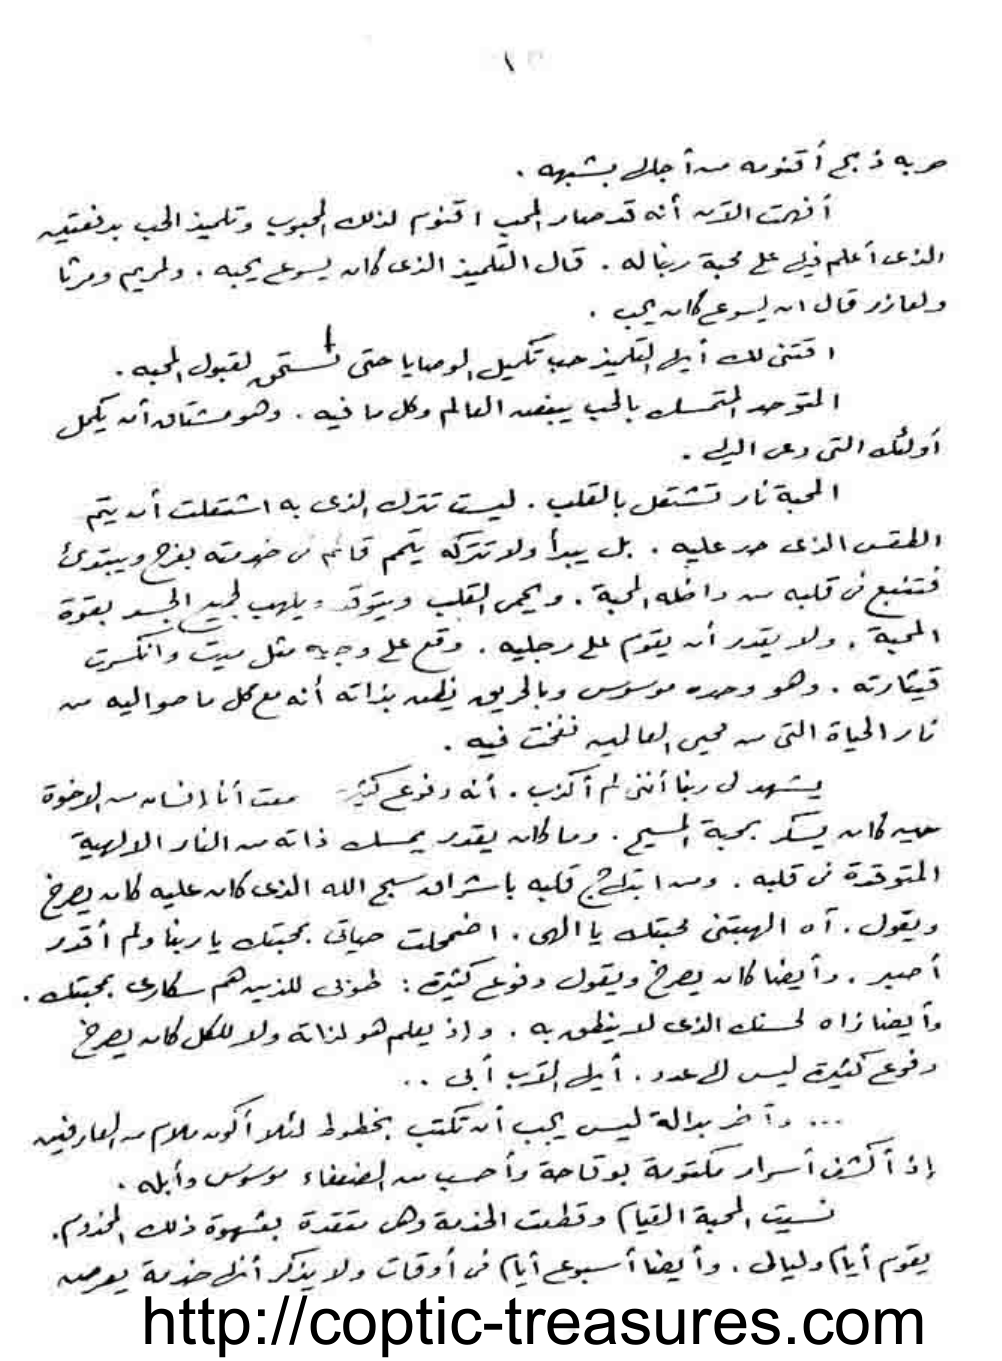 ١
حربه ذبح أقنومه من أجل بشبهه .
أفهمت الآن أنه قد صار المحب اقنوم لذلك المحبوب وتلميذ الحب بدفعتين
الذى أعلم فيلى على محبة ربنا له . قال التلميذ الذى كان يسوع يحبه . ولمريم ومرثا
ولعازر قال ان يسوع كان يحب .
اقتنى لك أيها التلميذ حب تكميل الوصايا حتى تستحق لقبول المحبه .
المتوحد المتمسك بالحب يبغض العالم وكل ما فيه . وهو مشتاق أن يكمل
أولئك التى دعى اليها .
المحبة نار تشتعل بالقلب . ليست تترك الذى به اشتعلت أن يتم
الطقس الذى حد عليه . بل يبدأ ولا تتركه يتمم قائم فى خدمته بفرح ويبتدئ
فتنبع فى قلبه من داخله المحبة . ويحمى القلب ويتوقد ويلهب لجميع الجسد بقوة
المحبة . ولا يقدر أن يقوم على رجليه . وقع على وجهه مثل ميت وانكسرت
قيثارته . وهو وحده موسوس وبالحريق يظن بذاته أنه مع كل ما حواليه من
نار الحياة التى من محيى العالمين نفخت فيه .
يشهد لى ربنا أننى لم أكذب . أنه دفوع كثيرة معت أنا إنسان من الاخوة
حين كان يسكر بمحبة المسيح . وما كان يقدر يمسك ذاته من النار الالهية
المتوقدة فى قلبه . ومن ابتهاج قلبه باشراق سبح الله الذى كان عليه كان يصرخ
ويقول . آه الهبتنى محبتك يا الهى . اضمحلت حياتى بمحبتك يا ربنا ولم أقدر
أصبر . وأيضا كان يصرخ ويقول دفوع كثيرة : طوبى للذين هم سكارى بمحبتك .
وأيضا نراه لحسنك الذى لا ينطق به . وإذ يعلم هو لذاته ولا للكل كان يصرخ
دفوع كثيرة ليس لها عدد . أيها الآب أبى . .
... وآخر بدالة ليس يجب أن تكتب بخطوط لئلا أكون ملام من العارفين
إذ أكشف أسرار مكتومة بوقاحة وأحسب من الضعفاء موسوس وأبله .
نسيت المحبة القيام وقطعت الخدمة وهى متقدة بشهوة ذلك المخدوم .
يقوم أيام وليالى . وأيضا أسبوع أيام فى أوقات ولا يذكر أنها خدمة يعرض
http://coptic-treasures.com